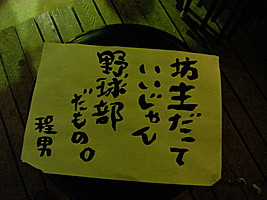 坊主だって
いいじゃん
野球部
だもの。
程男